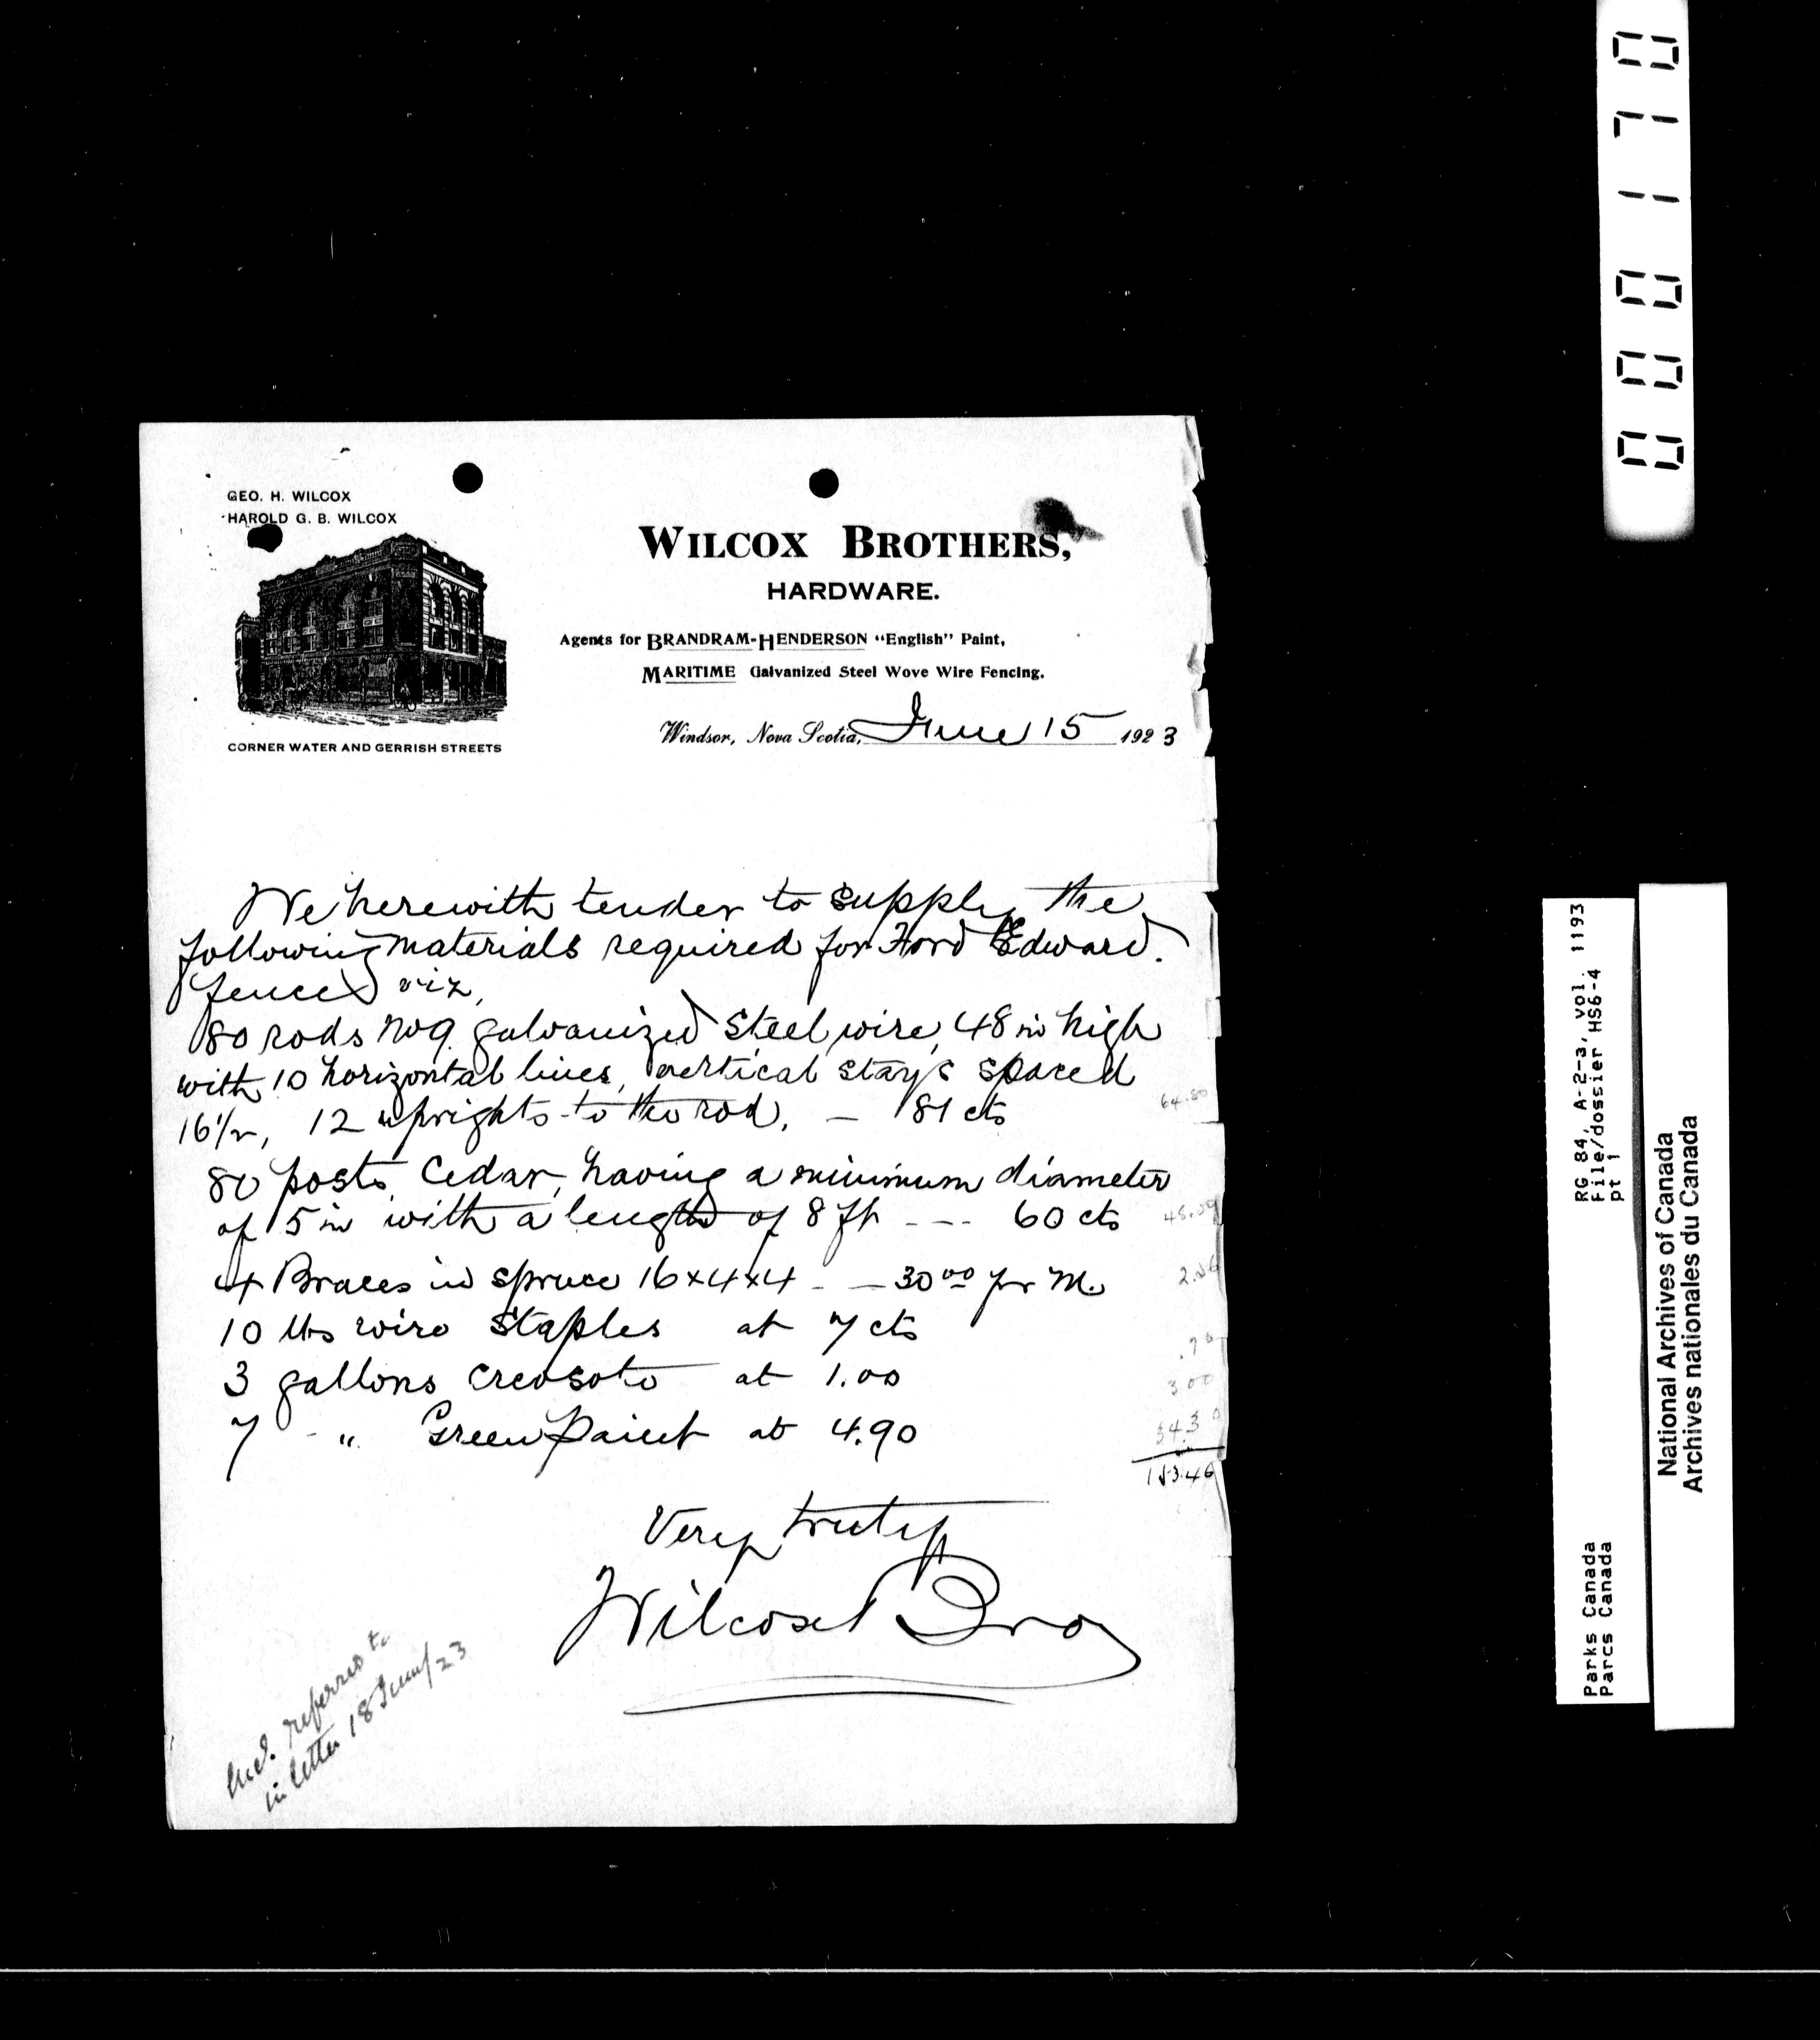 GEO. H. WILCOX
HAROLD G. B. WILCOX
CORNER WATER AND GERRISH STREETS
WILCOX BROTHERS,
HARDWARE.
Agents for BRANDRAM-HENDERSON "English" Paint,
MARITIME Galvanized Steel Wove Wire Fencing.
Windsor, Nova Scotia, June 15 1923
We herewith tender to supply the
following materials required for Ford Edward.
fence viz,
80 rods No 9 galvanized steel wire, 48 in high
with 10 horizontal lines, vertical stays spaced
16 1/2, 12 uprights to the rod. — 81 cts
64.80
80 posts Cedar, having a minimum diameter
of 5 in with a length of 8 ft - - - 60 cts
4 Braces in spruce 16x4x4 - — 30 00 pr M.
10 lbs wire Staples at 7 cts
3 gallons creosote at 1.00
3 00
7 - " Green Paint at 4.90
34.30
153.46
Very truly
Wilcox Bros
Incl. referred to
in letter 18 June/23
000170
RG 84, A-2-a, vol. 1193
File/dossier HS6-4
pt 1
Parks Canada
Parcs Canada
National Archives of Canada
Archives nationales du Canada